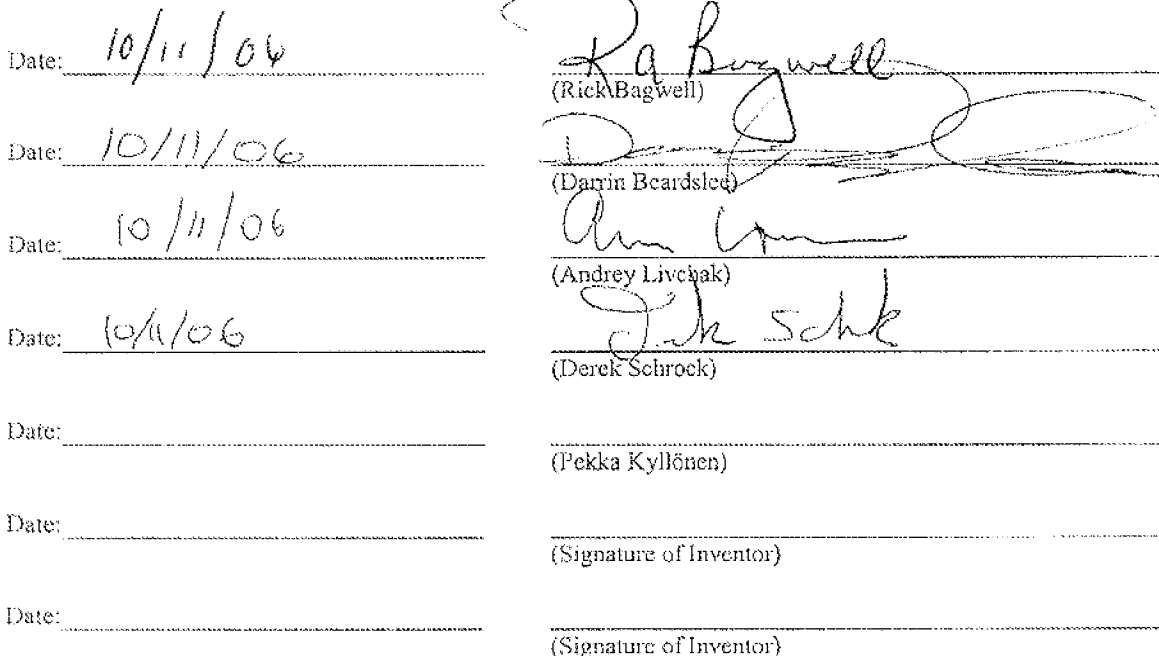 Date: 10/11/06 R A Bagwell
(Rick Bagwell)
Date: 10/11/06
(Darrin Beardslee)
Date: 10/11/06
(Andrey Livchak)
Date: 10/11/06
(Derek Schrock)
Date:
(Pekka Kyllönen)
Date:
(Signature of Inventor)
Date:
(Signature of Inventor)